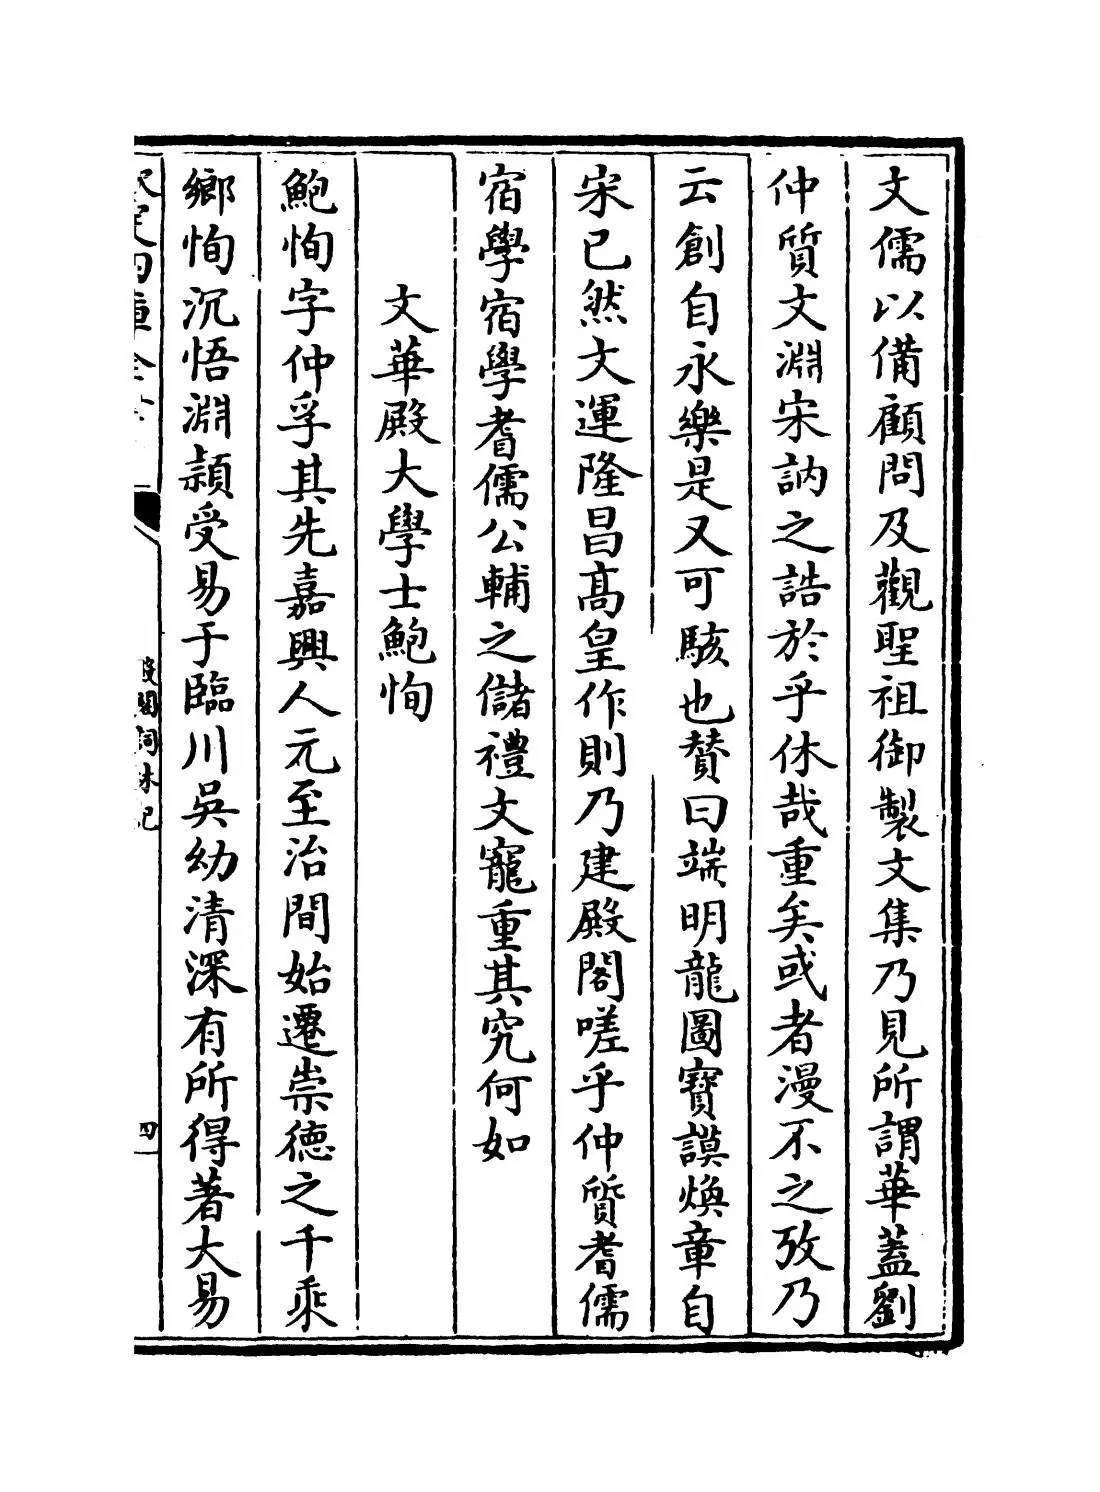 文儒以備顧問及觀聖祖御製文集乃見所謂華蓋劉
仲質文淵宋訥之誥於乎休哉重矣或者漫不之攷乃
云創自永樂是又可駭也賛曰端明龍圖寳謨煥章自
宋已然文運隆昌髙皇作則乃建殿閣嗟乎仲質耆儒
宿學宿學耆儒公輔之儲禮文寵重其究何如
文華殿大學士鮑恂
鮑恂字仲孚其先嘉興人元至治間始遷崇德之千乘
鄉恂沉悟淵頴受易于臨川吳幼清深有所得著大易
欽定四庫全書
殿閣詞林記
四